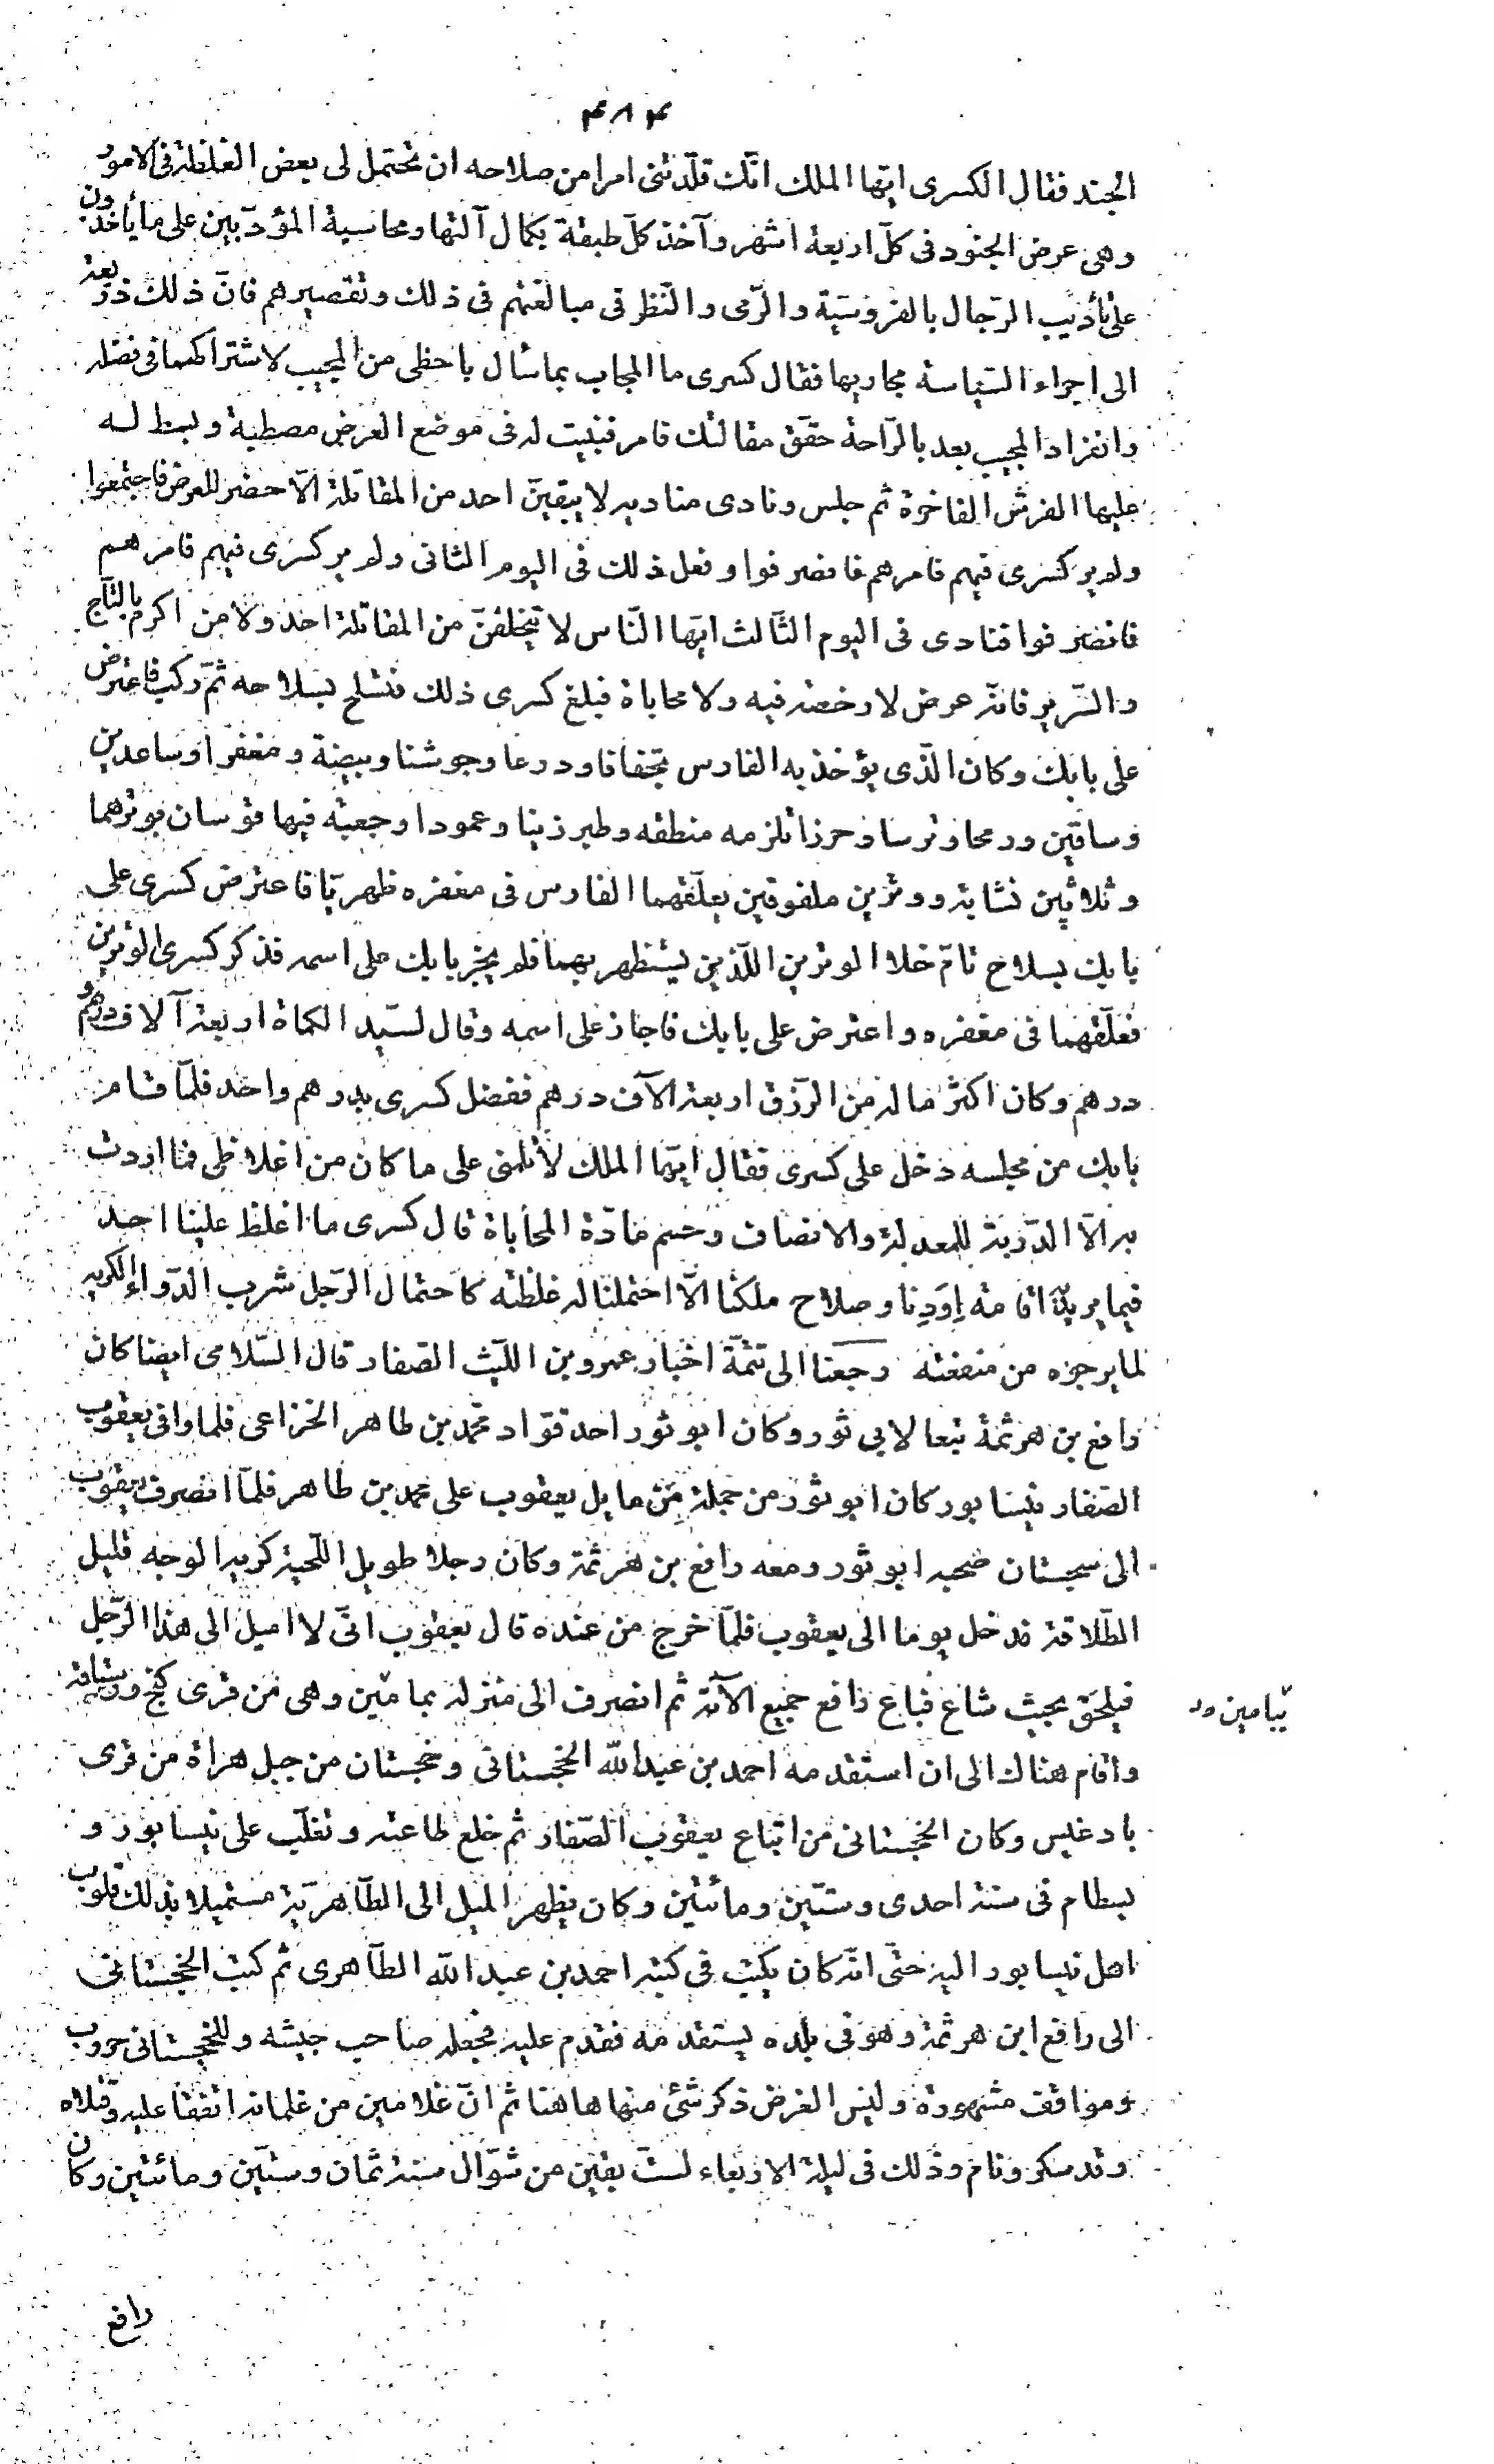 ۴۸۴
الجند فقال الكسرى ايّها الملك انّك قلّدتنى امرا من صلاحه ان تحتمل لى بعض الغلظة فى الامور
وهى عرض الجنود فى كلّ اربعة اشهر وآخذ كلّ طبقة بكمال آلتها ومحاسبة المؤدّبين على ما يأخذون
على تأديب الرّجال بالفروسيّة والرّمى والنّظر فى مبالغتهم فى ذلك وتقصيرهم فانّ ذلك ذريعة
الى اجراء السّياسة مجاريها فقال كسرى ما المجاب بما سأل باحظى من المجيب لاشتراكهما فى فضله
وانفراد المجيب بعد بالرّاحة حقّق مقالتك فامر فبنيت له فى موضع العرض مصطبة وبسط له
عليها الفرش الفاخرة ثم جلس ونادى مناديه لا يبقينّ احد من المقاتلة الّا حضر للعرض فاجتمعوا
ولم ير كسرى فيهم فامرهم فانصرفوا وفعل ذلك فى اليوم الثانى ولم ير كسرى فيهم فامرهم
فانصرفوا فنادى فى اليوم الثّالث ايّها النّاس لا يتخلفنّ من المقاتلة احد ولا من اكرم بالتّاج
والسّرير فانّه عرض لا رخصة فيه ولا محاباة فبلغ كسرى ذلك فتسلح بسلاحه ثمّ ركب فاعترض
على بابك وكان الّذى يؤخذ به الفارس تجفافا ودرعا وجوشنا وبيضة ومغفرا وساعدين
وساقين ورمحا وترسا وحرزا تلزمه منطقه وطبرزينا وعمودا وجعبة فيها قوسان بوترهما
وثلاثين نشابة ووترين ملفوفين يعلّقهما الفارس فى مغفره ظهريّا فاعترض كسرى على
بابك بسلاح تامّ خلا الوترين اللّذين يستظهر بهما فلم يجز بابك على اسمه فذكر كسرى الوترين
فعلّقهما فى مغفره واعترض على بابك فاجاز على اسمه وقال لسيّد الكماة اربعة آلاف درهم و
درهم وكان اكثر ما له من الرّزق اربعة الآف درهم ففضل كسرى بدرهم واحد فلمّا قام
بابك من مجلسه دخل على كسرى فقال ايّها الملك لا تلمنى على ما كان من اغلاظى فما اردت
به الّا الدّربة للمعدلة والانصاف وحسم مادّة المحاباة قال كسرى ما اغلظ علينا احد
فيما يريد اقامة اودنا وصلاح ملكنا الّا احتملنا له غلظته كاحتمال الرّجل شرب الدّواء الكريه
لما يرجوه من منفعته رجعنا الى تتمّة اخبار عمرو بن اللّيث الصّفار قال السّلامى ايضا كان
رافع بن هرثمة تبعا لابى ثور وكان ابو ثور احد قوّاد محمّد بن طاهر الخزاعى فلما وافى يعقوب
الصّفار نيسابور كان ابو ثور من جملة من مايل يعقوب على محمد بن طاهر فلمّا انصرف يعقوب
الى سجستان صحبه ابو ثور ومعه رافع بن هرثمة وكان رجلا طويل اللّحية كريه الوجه قليل
الطّلاقة فدخل يوما الى يعقوب فلمّا خرج من عنده قال يعقوب انّى لا اميل الى هذا الرّجل
فيلحق بحيث شاء فباع رافع جميع الآته ثم انصرف الى منزله بمامين وهى من قرى كنج رستاقه
تيامين ور
واقام هناك الى ان استقدمه احمد بن عبد الله الخجستانى وخجستان من جبل هراة من قرى
بادغيس وكان الخجستانى من اتباع يعقوب الصّفار ثم خلع طاعته وتغلّب على نيسابور و
بسطام فى سنة احدى وستّين ومائتين وكان يظهر الميل الى الطّاهريّة مستميلا بذلك قلوب
اهل نيسابور اليه حتّى انّه كان يكتب فى كتبه احمد بن عبد الله الطّاهرى ثم كتب الخجستانى
الى رافع ابن هرثمة وهو فى بلده يستقدمه فقدم عليه فجعله صاحب جيشه وللخجستانى حروب
ومواقف مشهورة وليس الغرض ذكر شئ منها هاهنا ثم انّ غلامين من غلمانه اتفقا عليه وقتلاه
وقد سكر ونام وذلك فى ليلة الاربعاء لستّ بقين من شوّال سنة ثمان وستّين ومائتين وكان
رافع